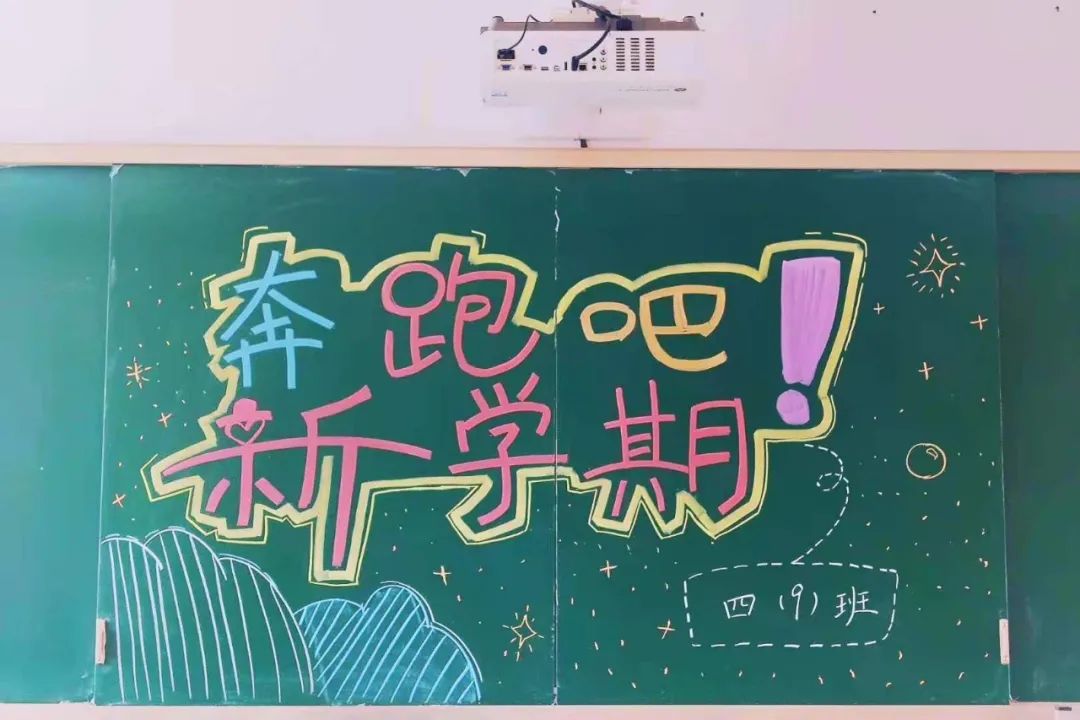 奔跑吧！
新学期
四（9）班